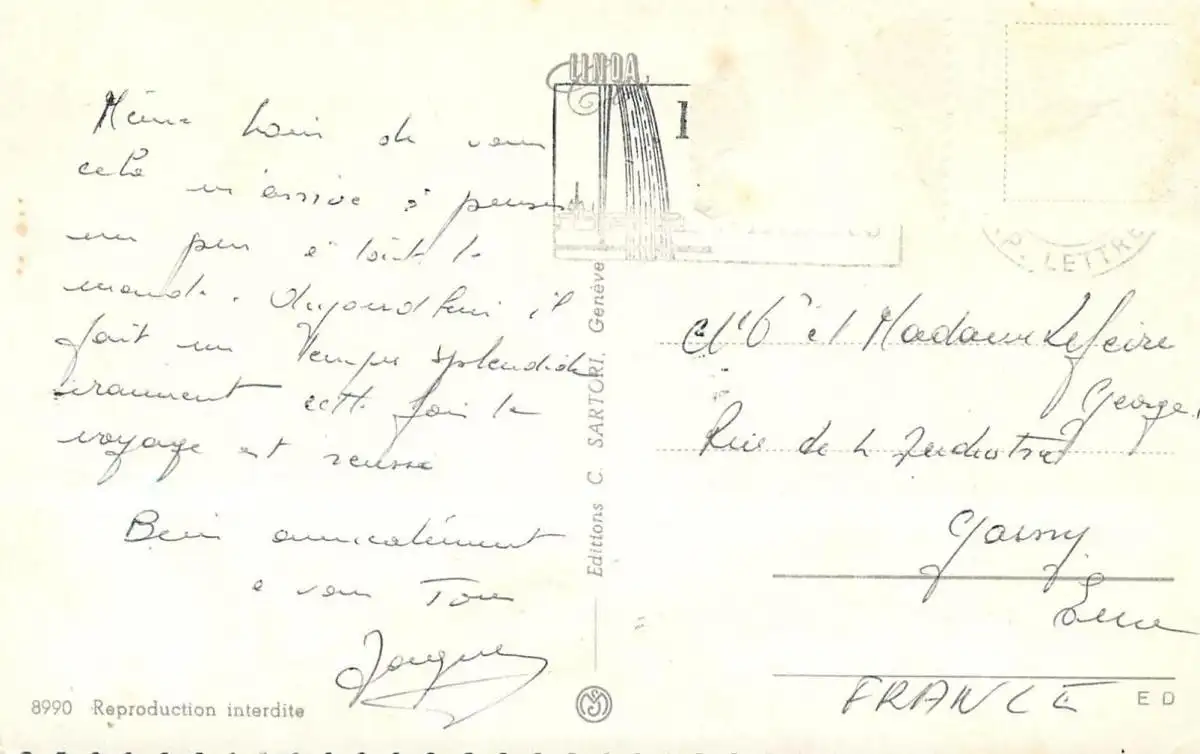 Même loin de vous
cela m'arrive à penser
un peu à tout le
monde. Aujourd'hui il
fait un temps splendide
vraiment cette fois le
voyage est reussi
Bien amicalement
a vous Tous
Jacques
8990 Reproduction interdite
Editions C. SARTORI, Genève
LINDA
P. LETTRE
et Madame
George
Rue de
Gasny
Eure
FRANCE
E D